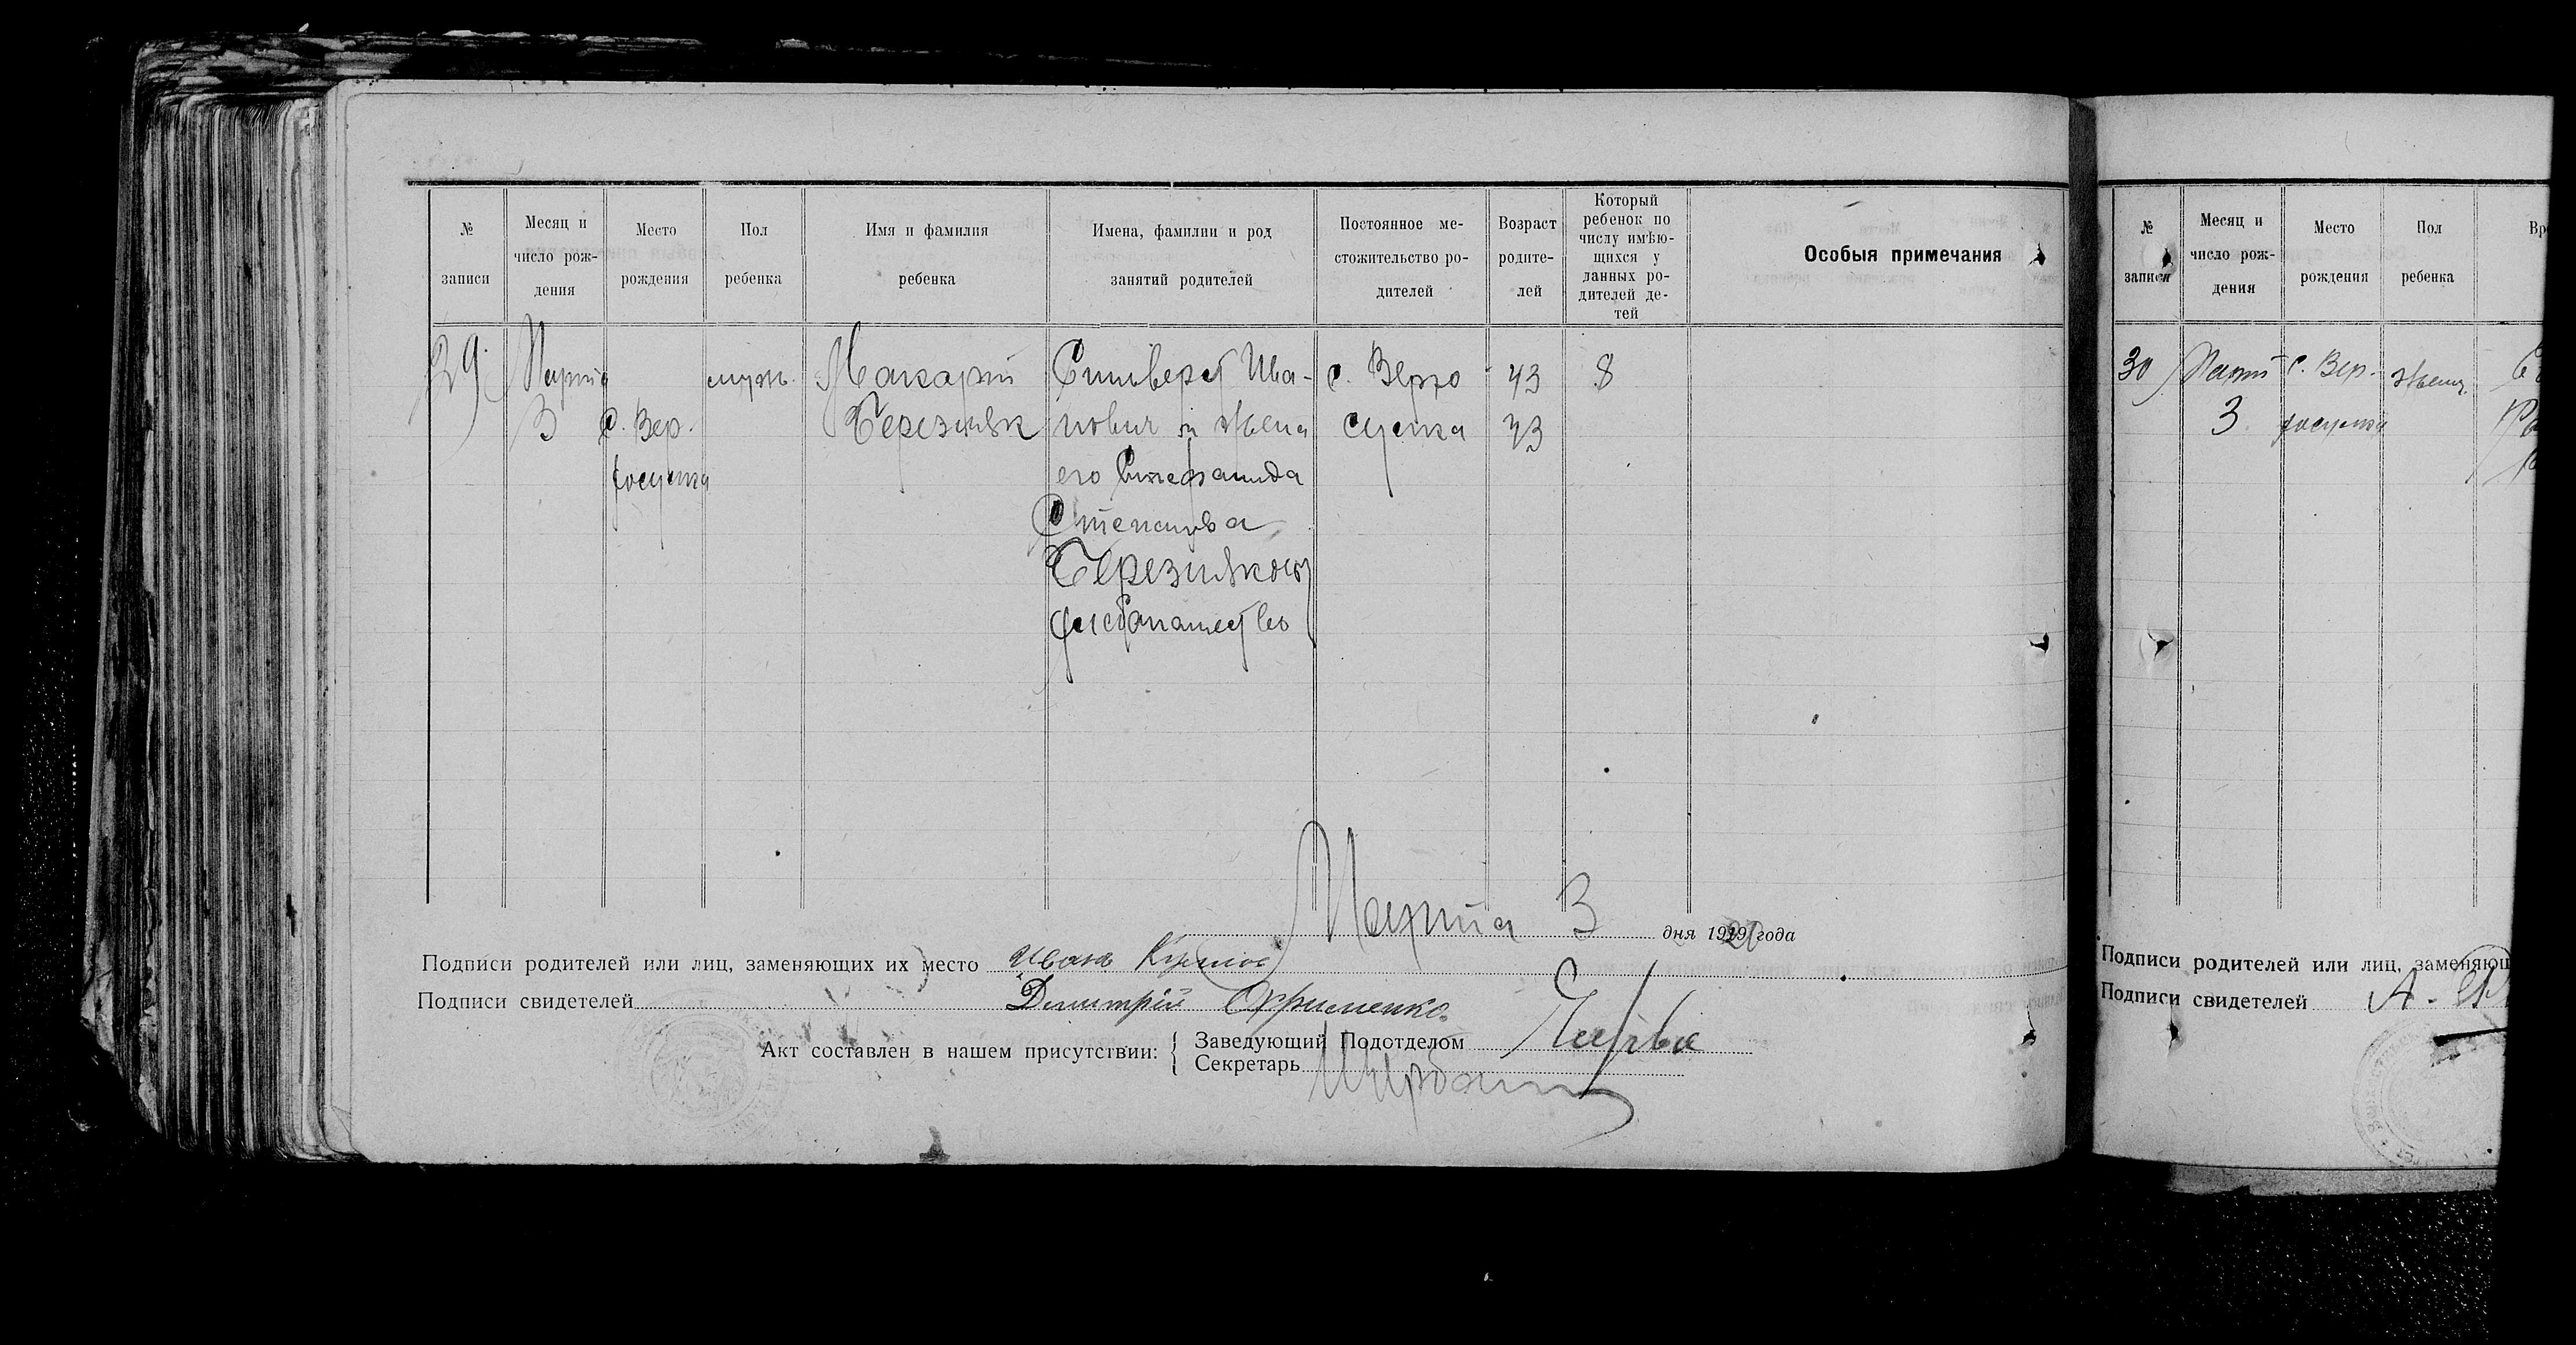 № записи
Месяц и число рождения
Место рождения
Пол ребенка
Имя и фамилия ребенка
Имена, фамилии и род занятий родителей
Постоянное местожительство родителей
Возраст родителей
Который ребенок по числу имѣющихся у данных родителей детей
Особыя примечания
29
Марта
муж.
Макарт
Сильверст Ива-
с. Верхо
43
8
3
с. Вер.
Березняк
нович и жена
сулка
43
хосулка
его Стефанида
Степанова
хлебопашество
Марта 3 дня 1920 года
Подписи родителей или лиц, заменяющих их место Иван
Подписи свидетелей Димитрій Ефименко.
Акт составлен в нашем присутствии:
Заведующий Подотделом
Секретарь
№ записи
Месяц и число рождения
Место рождения
Пол ребенка
30
Март
с. Вер.
женс.
3
хосулка
Подписи родителей или лиц, заменяющ
Подписи свидетелей А.